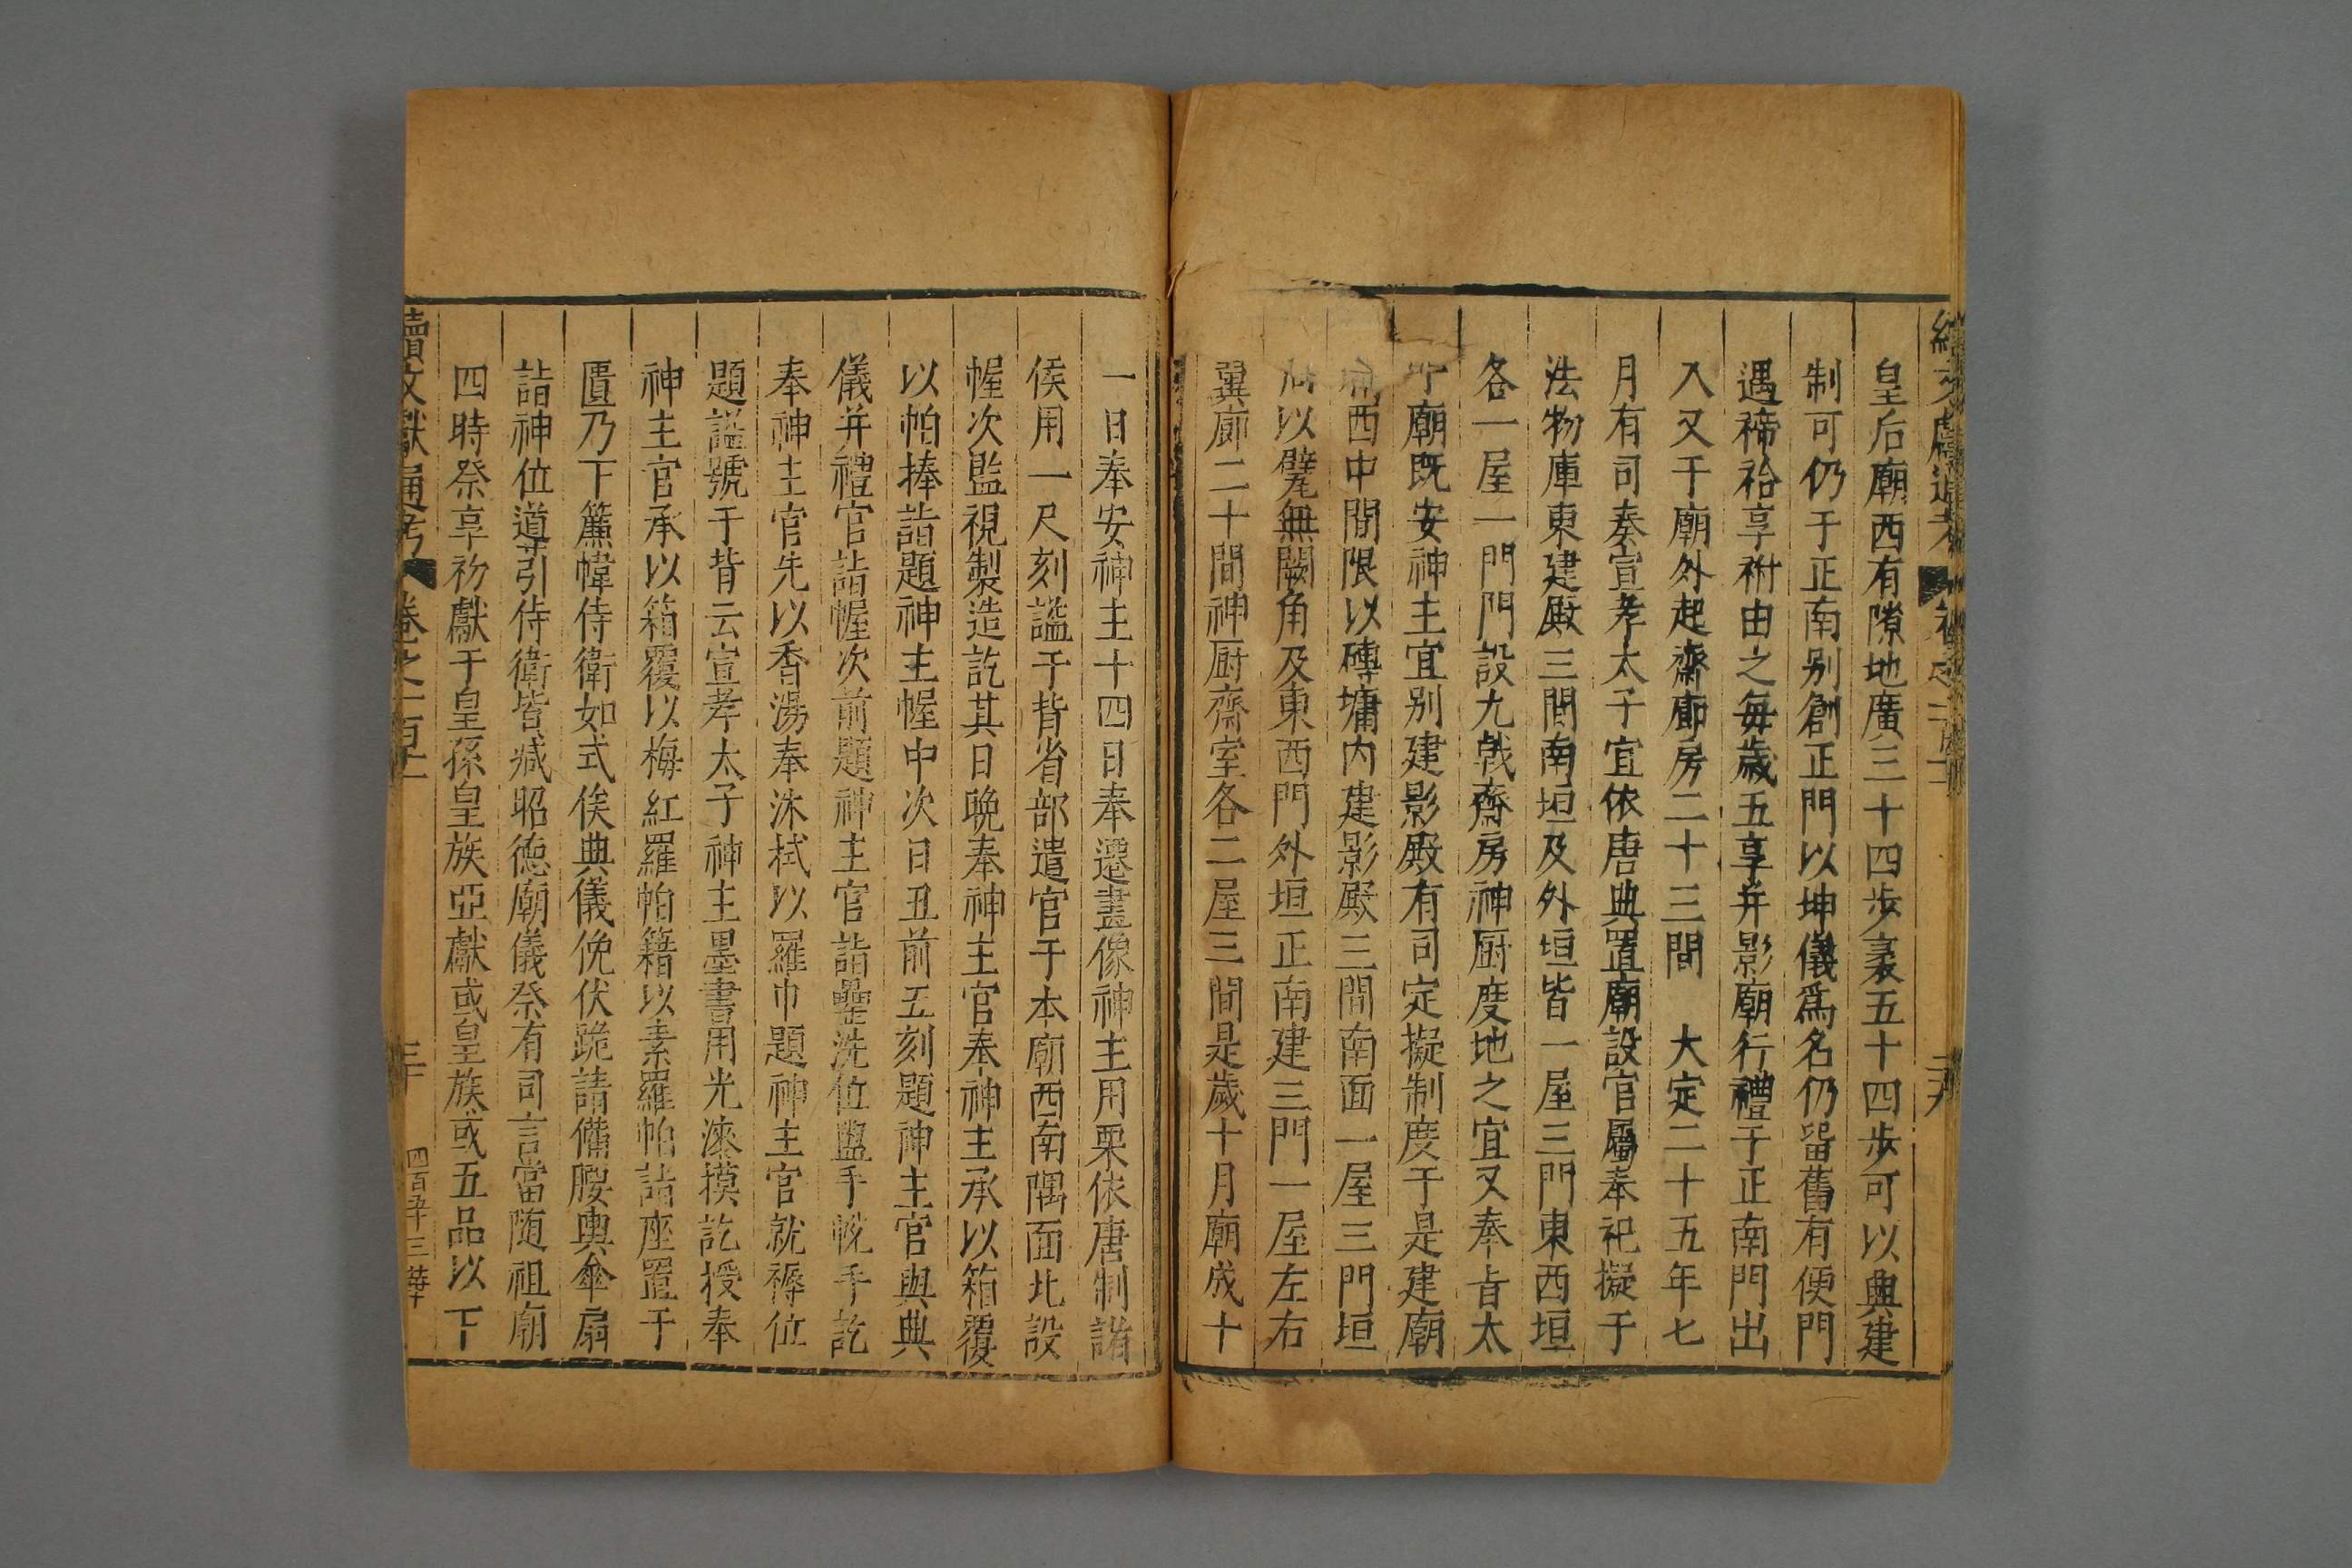 皇后廟西有隙地廣三十四步袤五十四步可以興建
制可仍于正南別創正門以坤儀爲名仍留舊有便門
遇禘祫享祔由之每歲五享并影廟行禮于正南門出
入又于廟外起齋廊房二十三間　大定二十五年七
月有司奏宣孝太子宜依唐典置廟設官屬奉祀擬于
法物庫東建殿三間南垣及外垣皆一屋三門東西垣
各一屋一門門設九戟齋房神厨度地之宜又奉旨太
廟既安神主宜别建影殿有司定擬制度于是建廟
西中間限以磚墉内建影殿三間南面一屋三門垣
以甓無闕角及東西門外垣正南建三門一屋左右
翼廊二十間神厨齋室各二屋三間是歲十月廟成十
一日奉安神主十四日奉遷畫像神主用栗依唐制諸
侯用一尺刻謚于背省部遣官于本廟西南隅面北設
幄次監視製造訖其日晩奉神主官奉神主承以箱覆
以帕捧詣題神主幄中次日丑前五刻題神主官與典
儀并禮官詣幄次前題神主官詣罍洗位盥手帨手訖
奉神主官先以香湯奉沐拭以羅巾題神主官就褥位
題謚號于背云宣孝太子神主墨書用光漆摸訖授奉
神主官承以箱覆以梅紅羅帕籍以素羅帕詣座置于
匱乃下簾幃侍衛如式俟典儀俛伏跪請備腰輿傘扇
詣神位道引侍衛皆减昭德廟儀祭有司言當随祖廟
四時祭享初獻于皇孫皇族亞獻或皇族或五品以下
續文獻通考　卷之一百十　三十　四百五十三